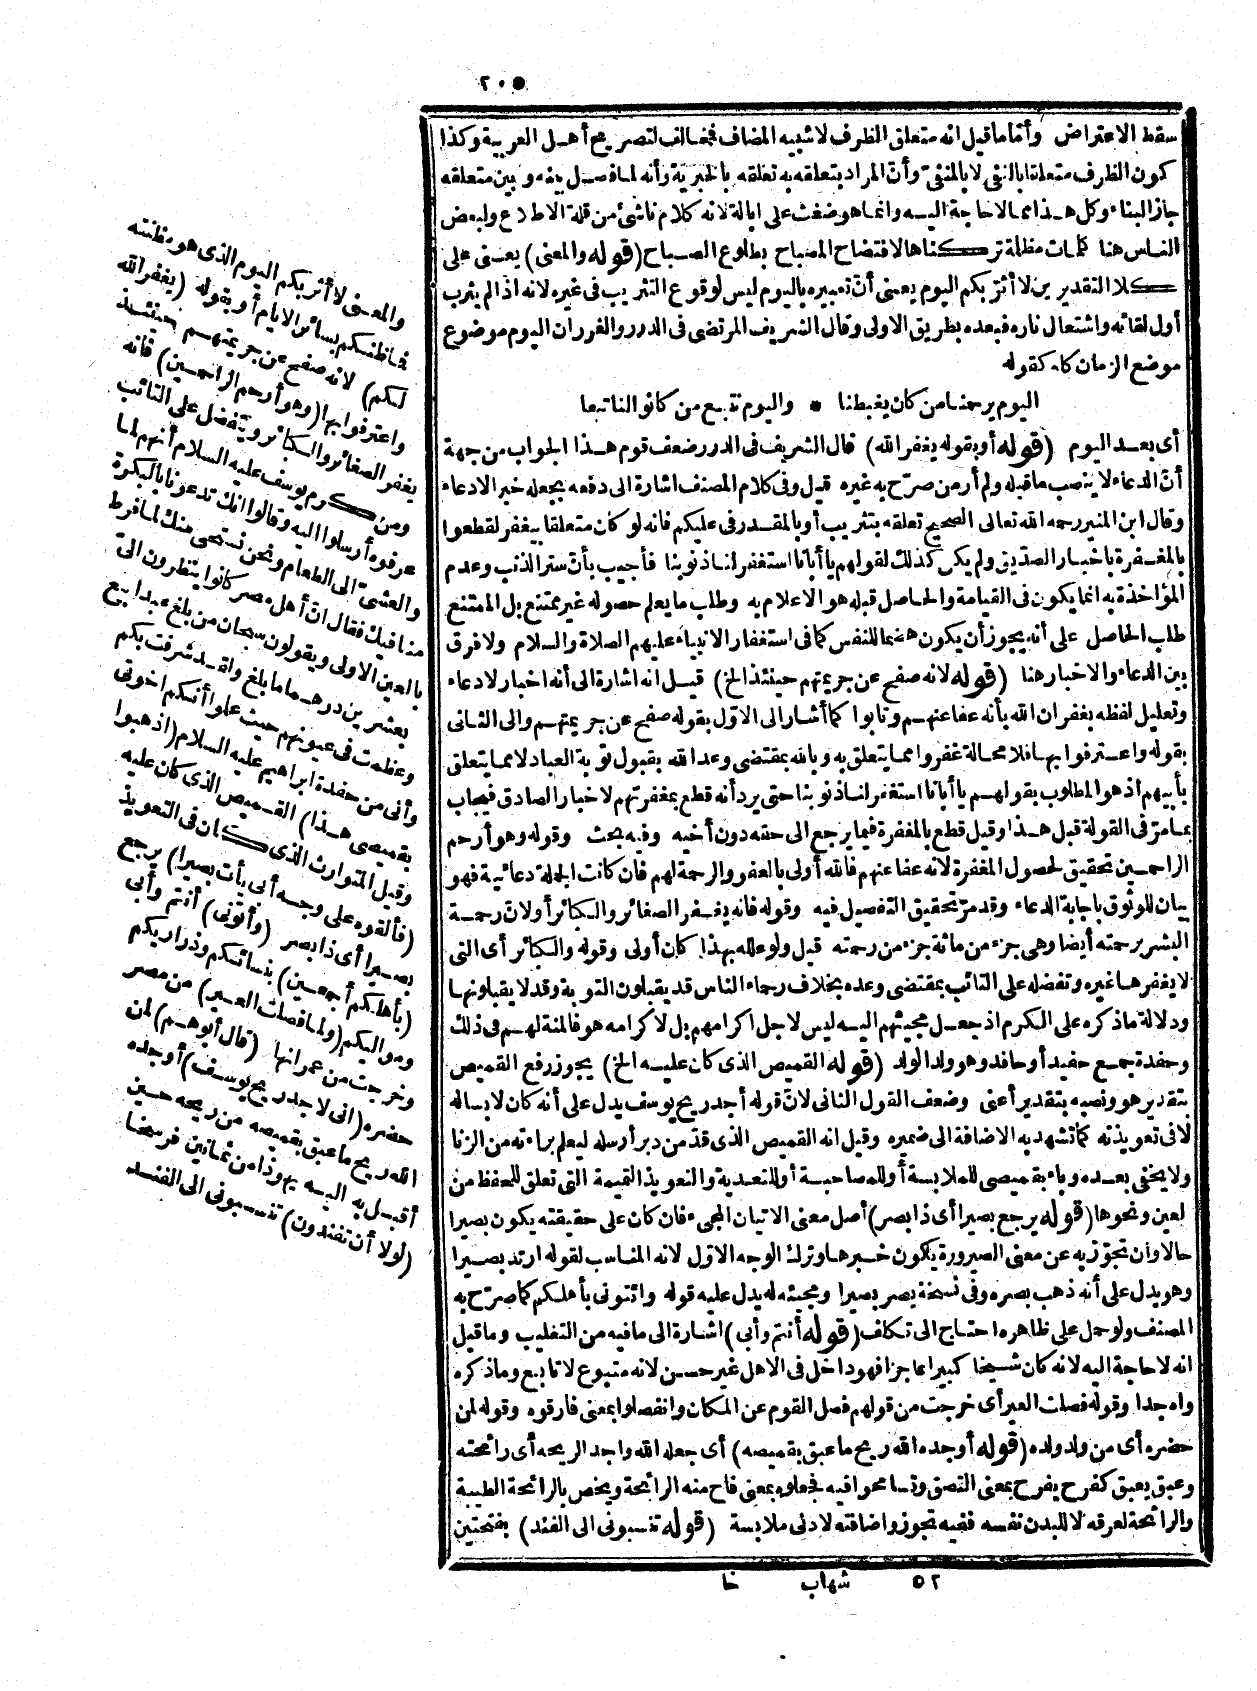 ٢٠٥
سقط الاعتراض وأما ما قيل انه متعلق الظرف لا شبيه المضاف فمخالف لتصريح أهل العربية وكذا
كون الظرف متعلقا بالنفى لا بالمنفىّ وأنّ المراد بتعلقه به تعلقه بالخبرية وأنه لما فصل بينه وبين متعلقه
جاز البناء وكل هذا مما لا حاجة اليه وانما هو ضغث على ابالة لانه كلام ناشئ من قلة الاطلاع ولبعض
الناس هنا كلمات مظلمة تركناها لافتضاح المصباح بطلوع الصباح (قوله والمعنى) يعنى على
كلا التقديرين لا أثرّبكم اليوم يعنى أنّ تعبيره باليوم ليس لوقوع التثريب فى غيره لانه اذا لم يثرب
أول لقائه واشتعال ناره فبعده بطريق الاولى وقال الشريف المرتضى فى الدرر والغرر ان اليوم موضوع
موضع الزمان كله كقوله
اليوم يرحمنا من كان يغبطنا * واليوم نتبع من كانوا لنا تبعا
أى بعد اليوم (قوله أو بقوله يغفر الله) قال الشريف فى الدرر ضعف قوم هذا الجواب من جهة
أنّ الدعاء لا ينصب ما قبله ولم أر من صرّح به غيره قيل وفى كلام المصنف اشارة الى دفعه بجعله خبرا لا دعاء
وقال ابن المنير رحمه الله تعالى الصحيح تعلقه بتثريب أو بالمقدر فى عليكم فانه لو كان متعلقا بيغفر لقطعوا
بالمغفرة باخبار الصدّيق ولم يكن كذلك لقولهم يا أبانا استغفر لنا ذنوبنا فأجيب بأن ستر الذنب وعدم
المؤاخذة به انما يكون فى القيامة والحاصل قبله هو الاعلام به وطلب ما يعلم حصوله غير ممتنع بل الممتنع
طلب الحاصل على أنه يجوز أن يكون هضما للنفس كما فى استغفار الانبياء عليهم الصلاة والسلام ولا فرق
بين الدعاء والاخبار هنا (قوله لانه صفح عن جريمتهم حينئذ الخ) قيل انه اشارة الى أنه اخبار لا دعاء
وتعليل لفظه بغفران الله بأنه عفا عنهم وتابوا كما أشار الى الاول بقوله صفح عن جريمتهم والى الثانى
بقوله واعترفوا بها فلا محالة غفروا مما يتعلق به وبالله بمقتضى وعد الله بقبول توبة العباد لا مما يتعلق
بأبيهم اذ هو المطلوب بقولهم يا أبانا استغفر لنا ذنوبنا حتى يرد أنه قطع بمغفرتهم لاخبار الصادق فيجاب
بما مرّ فى القولة قبل هذا وقيل قطع بالمغفرة فيما يرجع الى حقه دون أخيه وفيه بحث وقوله وهو أرحم
الراحمين تحقيق لحصول المغفرة لانه عفا عنهم فالله أولى بالعفو والرحمة لهم فان كانت الجملة دعائية فهو
بيان للوثوق باجابة الدعاء وقد مرّ تحقيق التفصيل فيه وقوله فانه يغفر الصغائر والكبائر أو لان رحمة
البشر برحمته أيضا وهى جزء من مائة جزء من رحمته قيل ولو علله بهذا كان أولى وقوله والكبائر أى التى
لا يغفرها غيره وتفضله على التائب بمقتضى وعده بخلاف رحماء الناس قد يقبلون التوبة وقد لا يقبلونها
ودلالة ما ذكره على الكرم اذ جعل مجيئهم اليه ليس لاجل اكرامهم بل لا كرامه هو فالمنة لهم فى ذلك
وحفدة جمع حفيد أو حافد وهو ولد الولد (قوله القميص الذى كان عليه الخ) يجوز رفع القميص
بتقدير هو ونصبه بتقدير أعنى وضعف القول الثانى لانّ قوله أجد ريح يوسف يدل على أنه كان لابسا له
لا فى تعويذته كما تشهد به الاضافة الى ضميره وقيل انه القميص الذى قدّ من دبر أرسله ليعلم براءته من الزنا
ولا يخفى بعده وباء بقميصى للملابسة أو للمصاحبة أو للتعدية والتعويذ التميمة التى تعلق للحفظ من
لعين ونحوها (قوله يرجع بصيرا أى ذا بصر) أصل معنى الاتيان المجىء فان كان على حقيقته يكون بصيرا
حالا وان تجوّز به عن معنى الصيرورة يكون خبرها وترك الوجه الاوّل لانه المناسب لقوله ارتد بصيرا
وهو يدل على أنه ذهب بصره وفى نسخة بصر بصيرا ومجيئه له يدل عليه قوله وائتونى بأهلكم كما صرّح به
المصنف ولو حمل على ظاهره احتاج الى تكلف (قوله أنتم وأبى) اشارة الى ما فيه من التغليب وما قيل
انه لا حاجة اليه لانه كان شيخا كبيرا عاجزا فهو داخل فى الاهل غير حسن لانه متبوع لا تابع وما ذكره
واه جدا وقوله فصلت العير أى خرجت من قولهم فصل القوم عن المكان وانفصلوا بمعنى فارقوه وقوله لمن
حضره أى من ولد ولده (قوله أوجده الله ريح ما عبق بقميصه) أى جعله الله واجد الريحه أى رائحته
وعبق يعبق كفرح يفرح بمعنى التصق وتسامحوا فيه فجعلوه بمعنى فاح منه الرائحة ويخص بالرائحة الطيبة
والرائحة لعرقه لا للبدن نفسه ففيه تجوز واضافته لادنى ملابسة (قوله تنسبونى الى الفند) بفتحتين
٥٢ شهاب خا
والمعنى لا أثربكم اليوم الذى هو مظنته
فما ظنكم بسائر الايام أو بقوله (يغفر الله
لكم) لانه صفح عن جريمتهم حينئذ
واعترفوا بها (وهو أرحم الراحمين) فانه
يغفر الصغائر والكبائر ويتفضل على التائب
ومن كرم يوسف عليه السلام أنهم لما
عرفوه أرسلوا اليه وقالوا انك تدعونا بالبكرة
والعشىّ الى الطعام ونحن نستحيى منك لما فرط
منا فيك فقال ان أهل مصر كانوا ينظرون الىّ
بالعين الاولى ويقولون سبحان من بلغ عبدا بيع
بعشرين درهما ما بلغ ولقد شرفت بكم
وعظمت فى عيونهم حيث علموا أنكم اخوتى
وأنى من حفدة ابراهيم عليه السلام (اذهبوا
بقميصى هذا) القميص الذى كان عليه
وقيل المتوارث الذى كان فى التعويذ
(فألقوه على وجه أبى يأت بصيرا) يرجع
بصيرا أى ذا بصر (وأتونى) أنتم وأبى
(بأهلكم أجمعين) بنسائكم وذراريكم
ومواليكم (ولما فصلت العير) من مصر
وخرجت من عمرانها (قال أبوهم) لمن
حضره (انى لاجد ريح يوسف) أوجده
الله ريح ما عبق بقميصه من ريحه حين
أقبل به اليه يهوذا من ثمانين فرسخا
(لولا أن تفندون) تنسبونى الى الفند